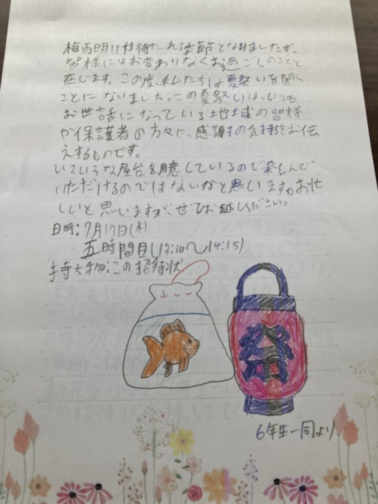 梅雨明けが待たれる季節となりましたが、
皆様にはお変わりなくお過ごしのことと
存じます。この度、私たちは夏祭りを開く
ことになりました。この夏祭りは、いつも
お世話になっている地域の皆様
や保護者の方々に、感謝の気持をお伝
えするものです。
いろいろな屋台を用意しているので楽しんで
いただけるのではないかと思います。お忙
しいと思いますがぜひお越しください。
日時:7月17日(木)
五時間目(13:10〜14:15)
持ち物:この招待状
祭
6年生一同より